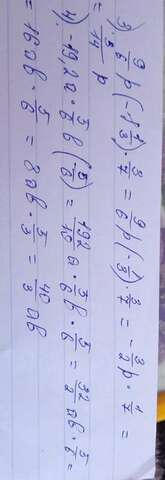 3) 9/6 p (-1 1/3) · 3/7 = 9/6 p (-7/3) · 3/7 = -3/2 p · 1/7 =
= 5/14 p
4) -19,2a · 5/6 b (5/6) = 192/10 a · 5/6 b · 5/6 = 32/2 ab · 5/6 =
= 16ab · 5/6 = 8ab · 5/3 = 40/3 ab